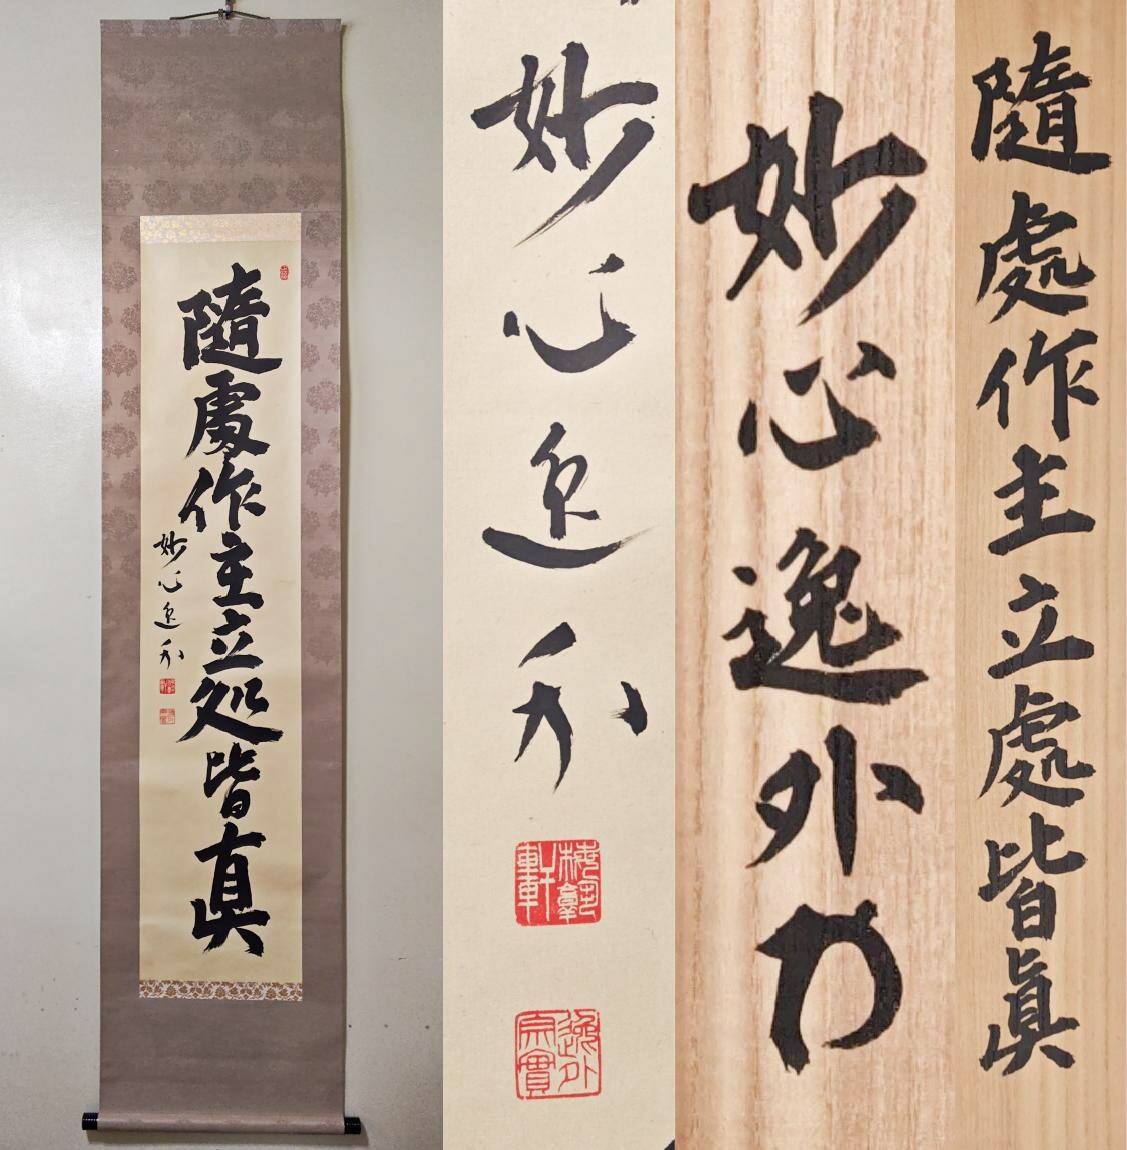 隨處作主立処皆真
妙心逸外
妙心逸外
逸外
宗實
妙心逸外
隨處作主立處皆眞